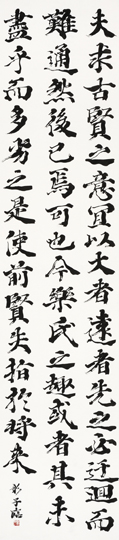 夫求古賢之意宜以大者遠者先之必迂迴而
難通然後已焉可也今樂氏之趣或者其未
盡乎而多勞之是使前賢失指於時來
彭子臨